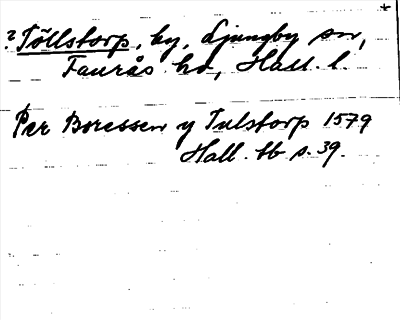 ? Töllstorp, by, Ljungby sn,
Faurås hd, Hall. l.
Per Boressen y Tulstorp 1579
Hall. bb s. 39.